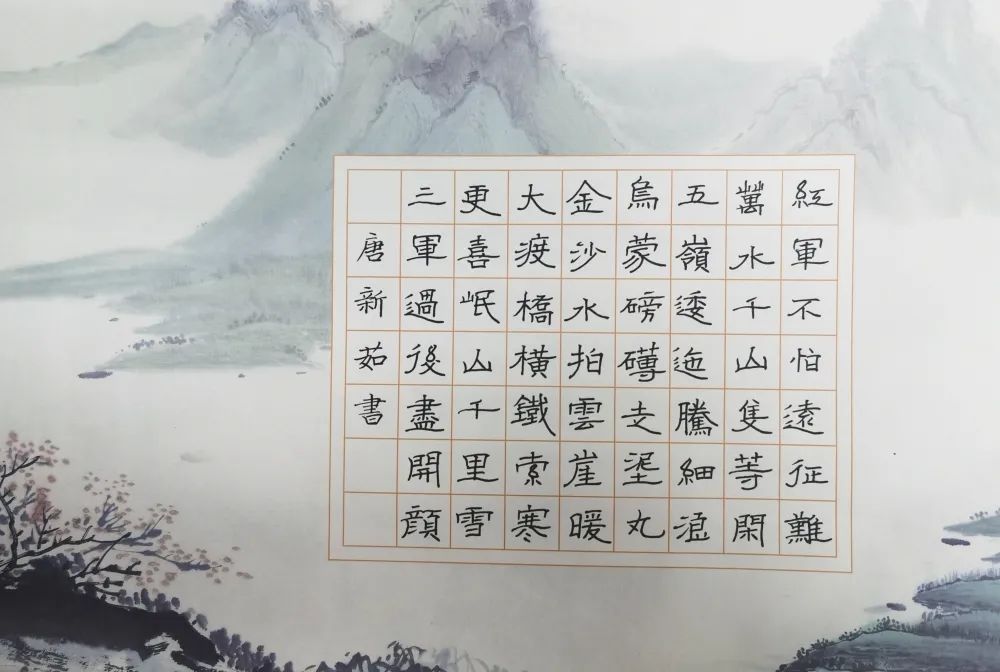 紅軍不怕遠征難
萬水千山隻等閑
五嶺逶迤騰細浪
烏蒙磅礴走埿丸
金沙水拍雲崖暖
大渡橋橫鐵索寒
更喜岷山千里雪
三軍過後盡開顔
唐新茹書